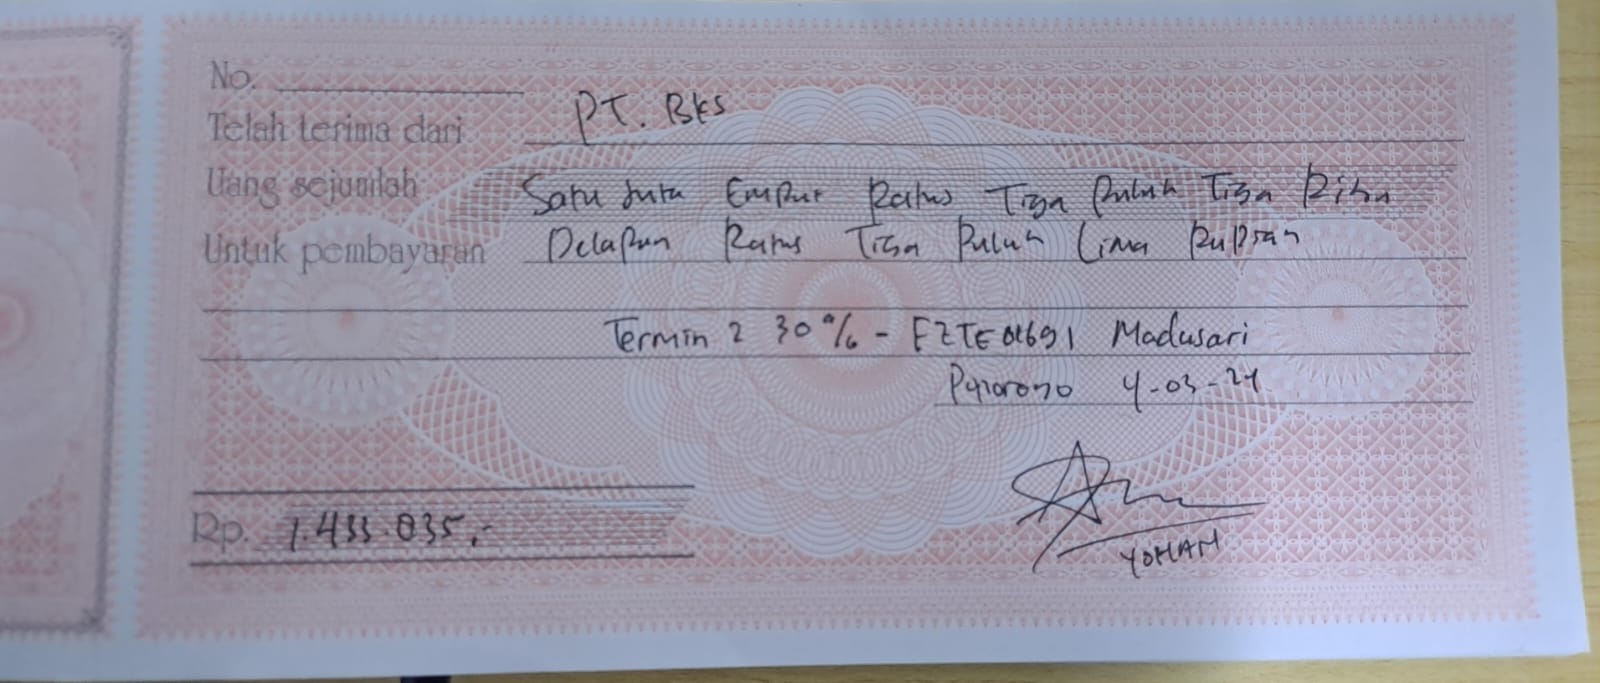 No.
Telah terima dari PT. BKS
Uang sejumlah Satu Juta Empat Ratus Tiga Puluh Tiga Ribu
Untuk pembayaran Delapan Ratus Tiga Puluh Lima Rupiah
Termin 2 30% - EZTE01691 Madusari
4-03-24
Rp. 1.433.835,-
YOHAN